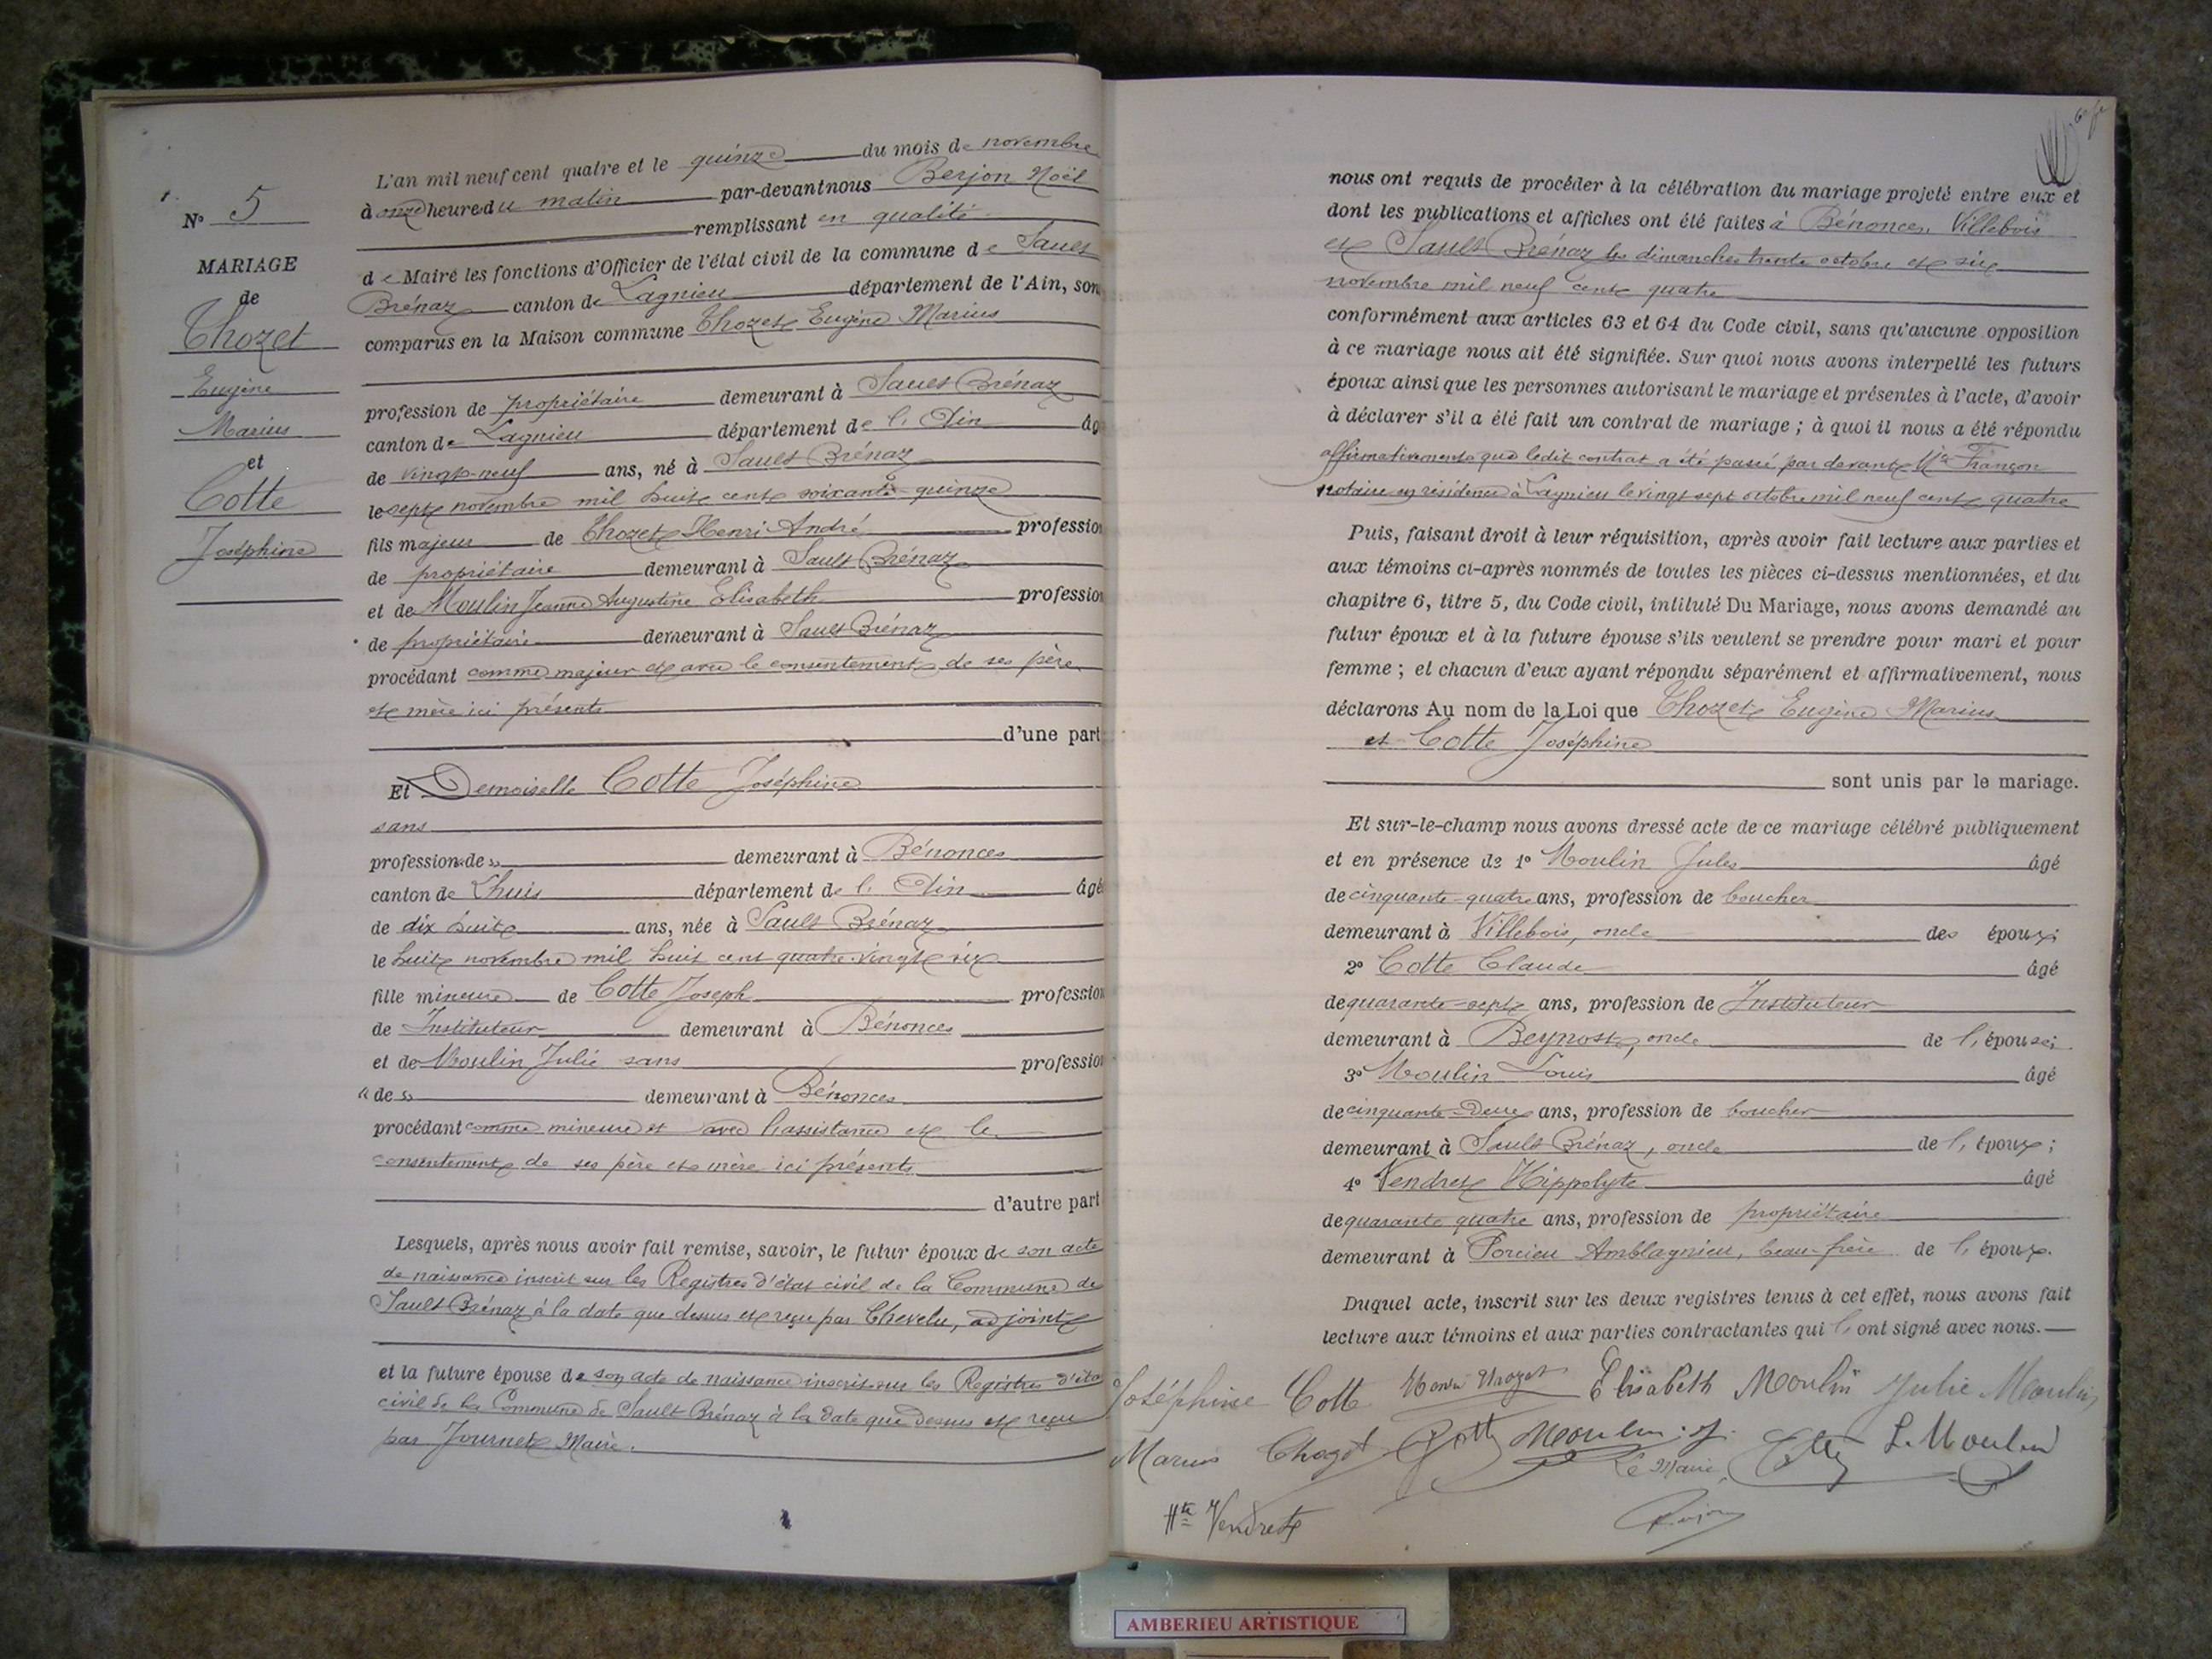 N° 5
MARIAGE
de
Thozet
Eugène
Marius
et
Cotte
Joséphine
L'an mil neuf cent quatre et le quinze du mois de novembre
à onze heure du matin par-devant nous Berjon Noël
remplissant en qualité
de Maire les fonctions d'Officier de l'état civil de la commune de Sault
Brénaz canton de Lagnieu département de l'Ain, son
comparus en la Maison commune Thozet Eugène Marius
profession de propriétaire demeurant à Sault Brénaz
canton de Lagnieu département de l'Ain âg
de vingt-neuf ans, né à Sault Brénaz
le sept novembre mil huit cent soixante-quinze
fils majeur de Thozet Henri André profession
de propriétaire demeurant à Sault Brénaz
et de Moulin Jeanne Augustine Elisabeth profession
de propriétaire demeurant à Sault Brénaz
procédant comme majeur et avec le consentement de ses père
et mère ici présents
d'une part
Et Demoiselle Cotte Joséphine
sans
profession de » demeurant à Bénonces
canton de Lhuis département de l'Ain âgé
de dix huit ans, née à Sault Brénaz
le huit novembre mil huit cent quatre-vingt six
fille mineure de Cotte Joseph profession
de Instituteur demeurant à Bénonces
et de Moulin Julie sans profession
« de » demeurant à Bénonces
procédant comme mineure et avec l'assistance et le
consentement de ses père et mère ici présents
d'autre part
Lesquels, après nous avoir fait remise, savoir, le futur époux de son acte
de naissance inscrit sur les Registres d'état civil de la Commune de
Sault Brénaz à la date que dessus et reçu par Chevelu, adjoint
et la future épouse de son acte de naissance inscrit sur les Registres d'éta
civil de la Commune de Sault Brénaz à la date que dessus et reçu
par Journet Maire.
nous ont requis de procéder à la célébration du mariage projeté entre eux et
dont les publications et affiches ont été faites à Bénonces, Villebois
et Sault Brénaz les dimanches trente octobre et six
novembre mil neuf cent quatre
conformément aux articles 63 et 64 du Code civil, sans qu'aucune opposition
à ce mariage nous ait été signifiée. Sur quoi nous avons interpellé les futurs
époux ainsi que les personnes autorisant le mariage et présentes à l'acte, d'avoir
à déclarer s'il a été fait un contrat de mariage ; à quoi il nous a été répondu
affirmativement que ledit contrat a été passé par devant Me Françon
notaire en résidence à Lagnieu le vingt sept octobre mil neuf cent quatre
Puis, faisant droit à leur réquisition, après avoir fait lecture aux parties et
aux témoins ci-après nommés de toutes les pièces ci-dessus mentionnées, et du
chapitre 6, titre 5, du Code civil, intitulé Du Mariage, nous avons demandé au
futur époux et à la future épouse s'ils veulent se prendre pour mari et pour
femme ; et chacun d'eux ayant répondu séparément et affirmativement, nous
déclarons Au nom de la Loi que Thozet Eugène Marius
et Cotte Joséphine
sont unis par le mariage.
Et sur-le-champ nous avons dressé acte de ce mariage célébré publiquement
et en présence de 1° Moulin Jules âgé
de cinquante-quatre ans, profession de boucher
demeurant à Villebois, oncle des époux;
2° Cotte Claude âgé
de quarante-sept ans, profession de Instituteur
demeurant à Beynost, oncle de l'épouse;
3° Moulin Louis âgé
de cinquante-Deux ans, profession de boucher
demeurant à Sault Brénaz, oncle de l'époux;
4° Vendret Hippolyte âgé
de quarante quatre ans, profession de propriétaire
demeurant à Porcieu Amblagnieu, beau-frère de l'époux.
Duquel acte, inscrit sur les deux registres tenus à cet effet, nous avons fait
lecture aux témoins et aux parties contractantes qui l'ont signé avec nous.
Joséphine Cotte Henri Thozet Elisabeth Moulin Julie Moulin
Marius Thozet Cotte Moulin J. L. Moulin
Le Maire,
Hte Vendret Berjon
AMBERIEU ARTISTIQUE